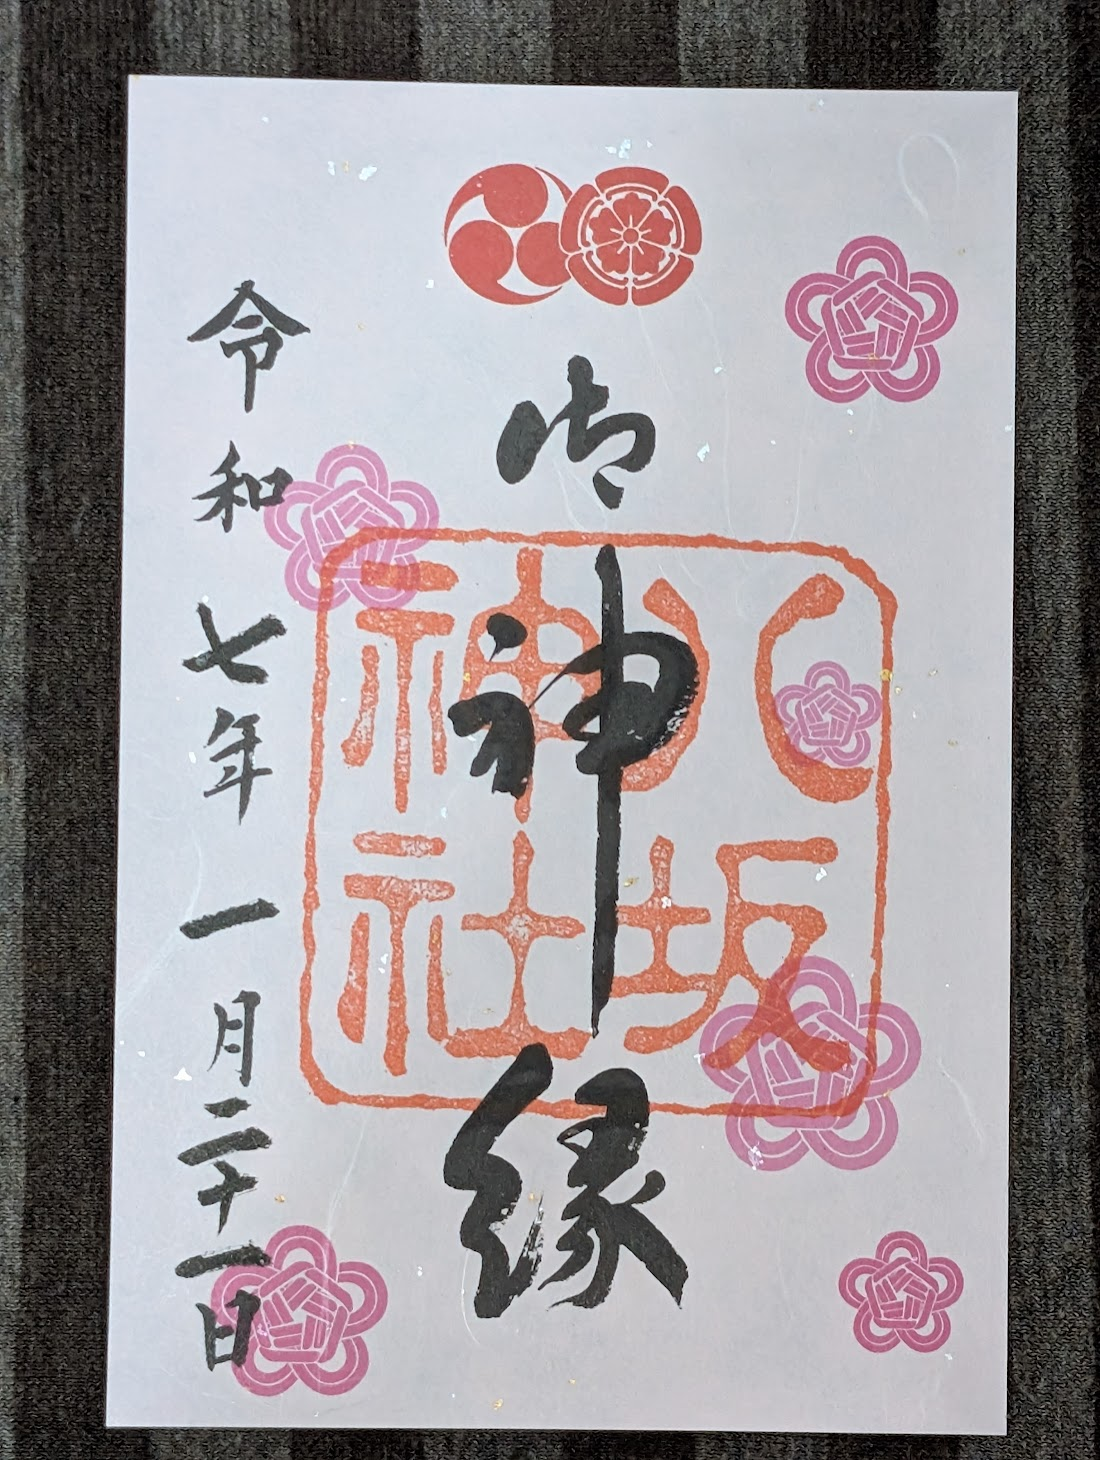 御神縁
八坂
神社
令和七年一月二十一日